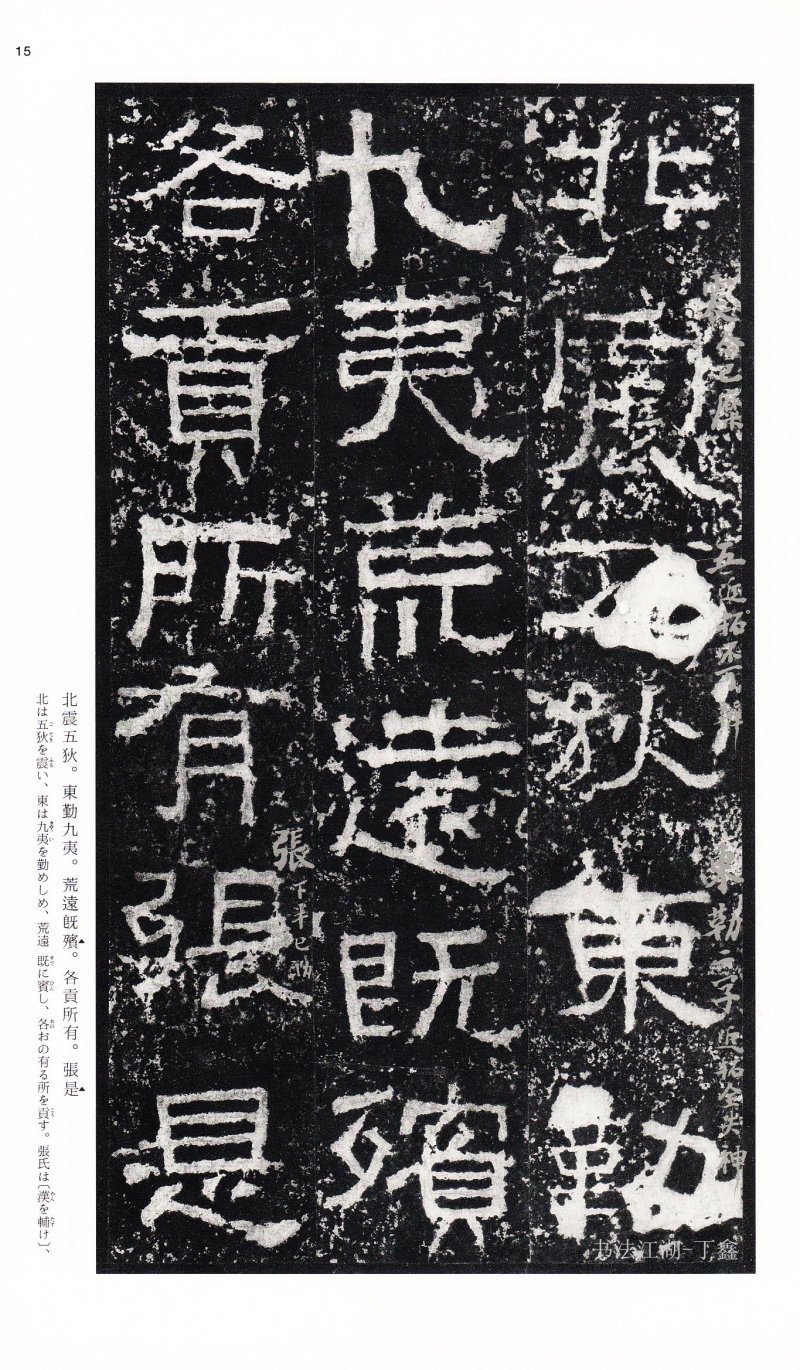 15
北震五狄東勤
九夷荒遠既殯
各貢所有張是
五近拓不可辨
東勤二字近拓全失神
張下半已泐
北震五狄。東勤九夷。荒遠既殯。各貢所有。張是
北は五狄を震い、東は九夷を勤めしめ、荒遠 既に賓し、各おの有る所を貢す。張氏は〔漢を輔け〕、
书法江湖-丁鑫